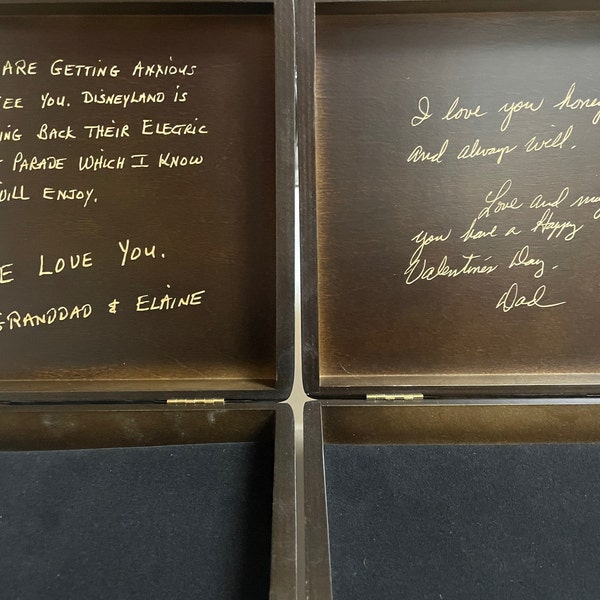 ARE GETTING ANXIOUS
SEE YOU. DISNEYLAND IS
ING BACK THEIR ELECTRIC
PARADE WHICH I KNOW
WILL ENJOY.
E LOVE YOU.
GRANDDAD & ELAINE
I love you honey
and always will.
Love and may
you have a Happy
Valentine's Day.
Dad